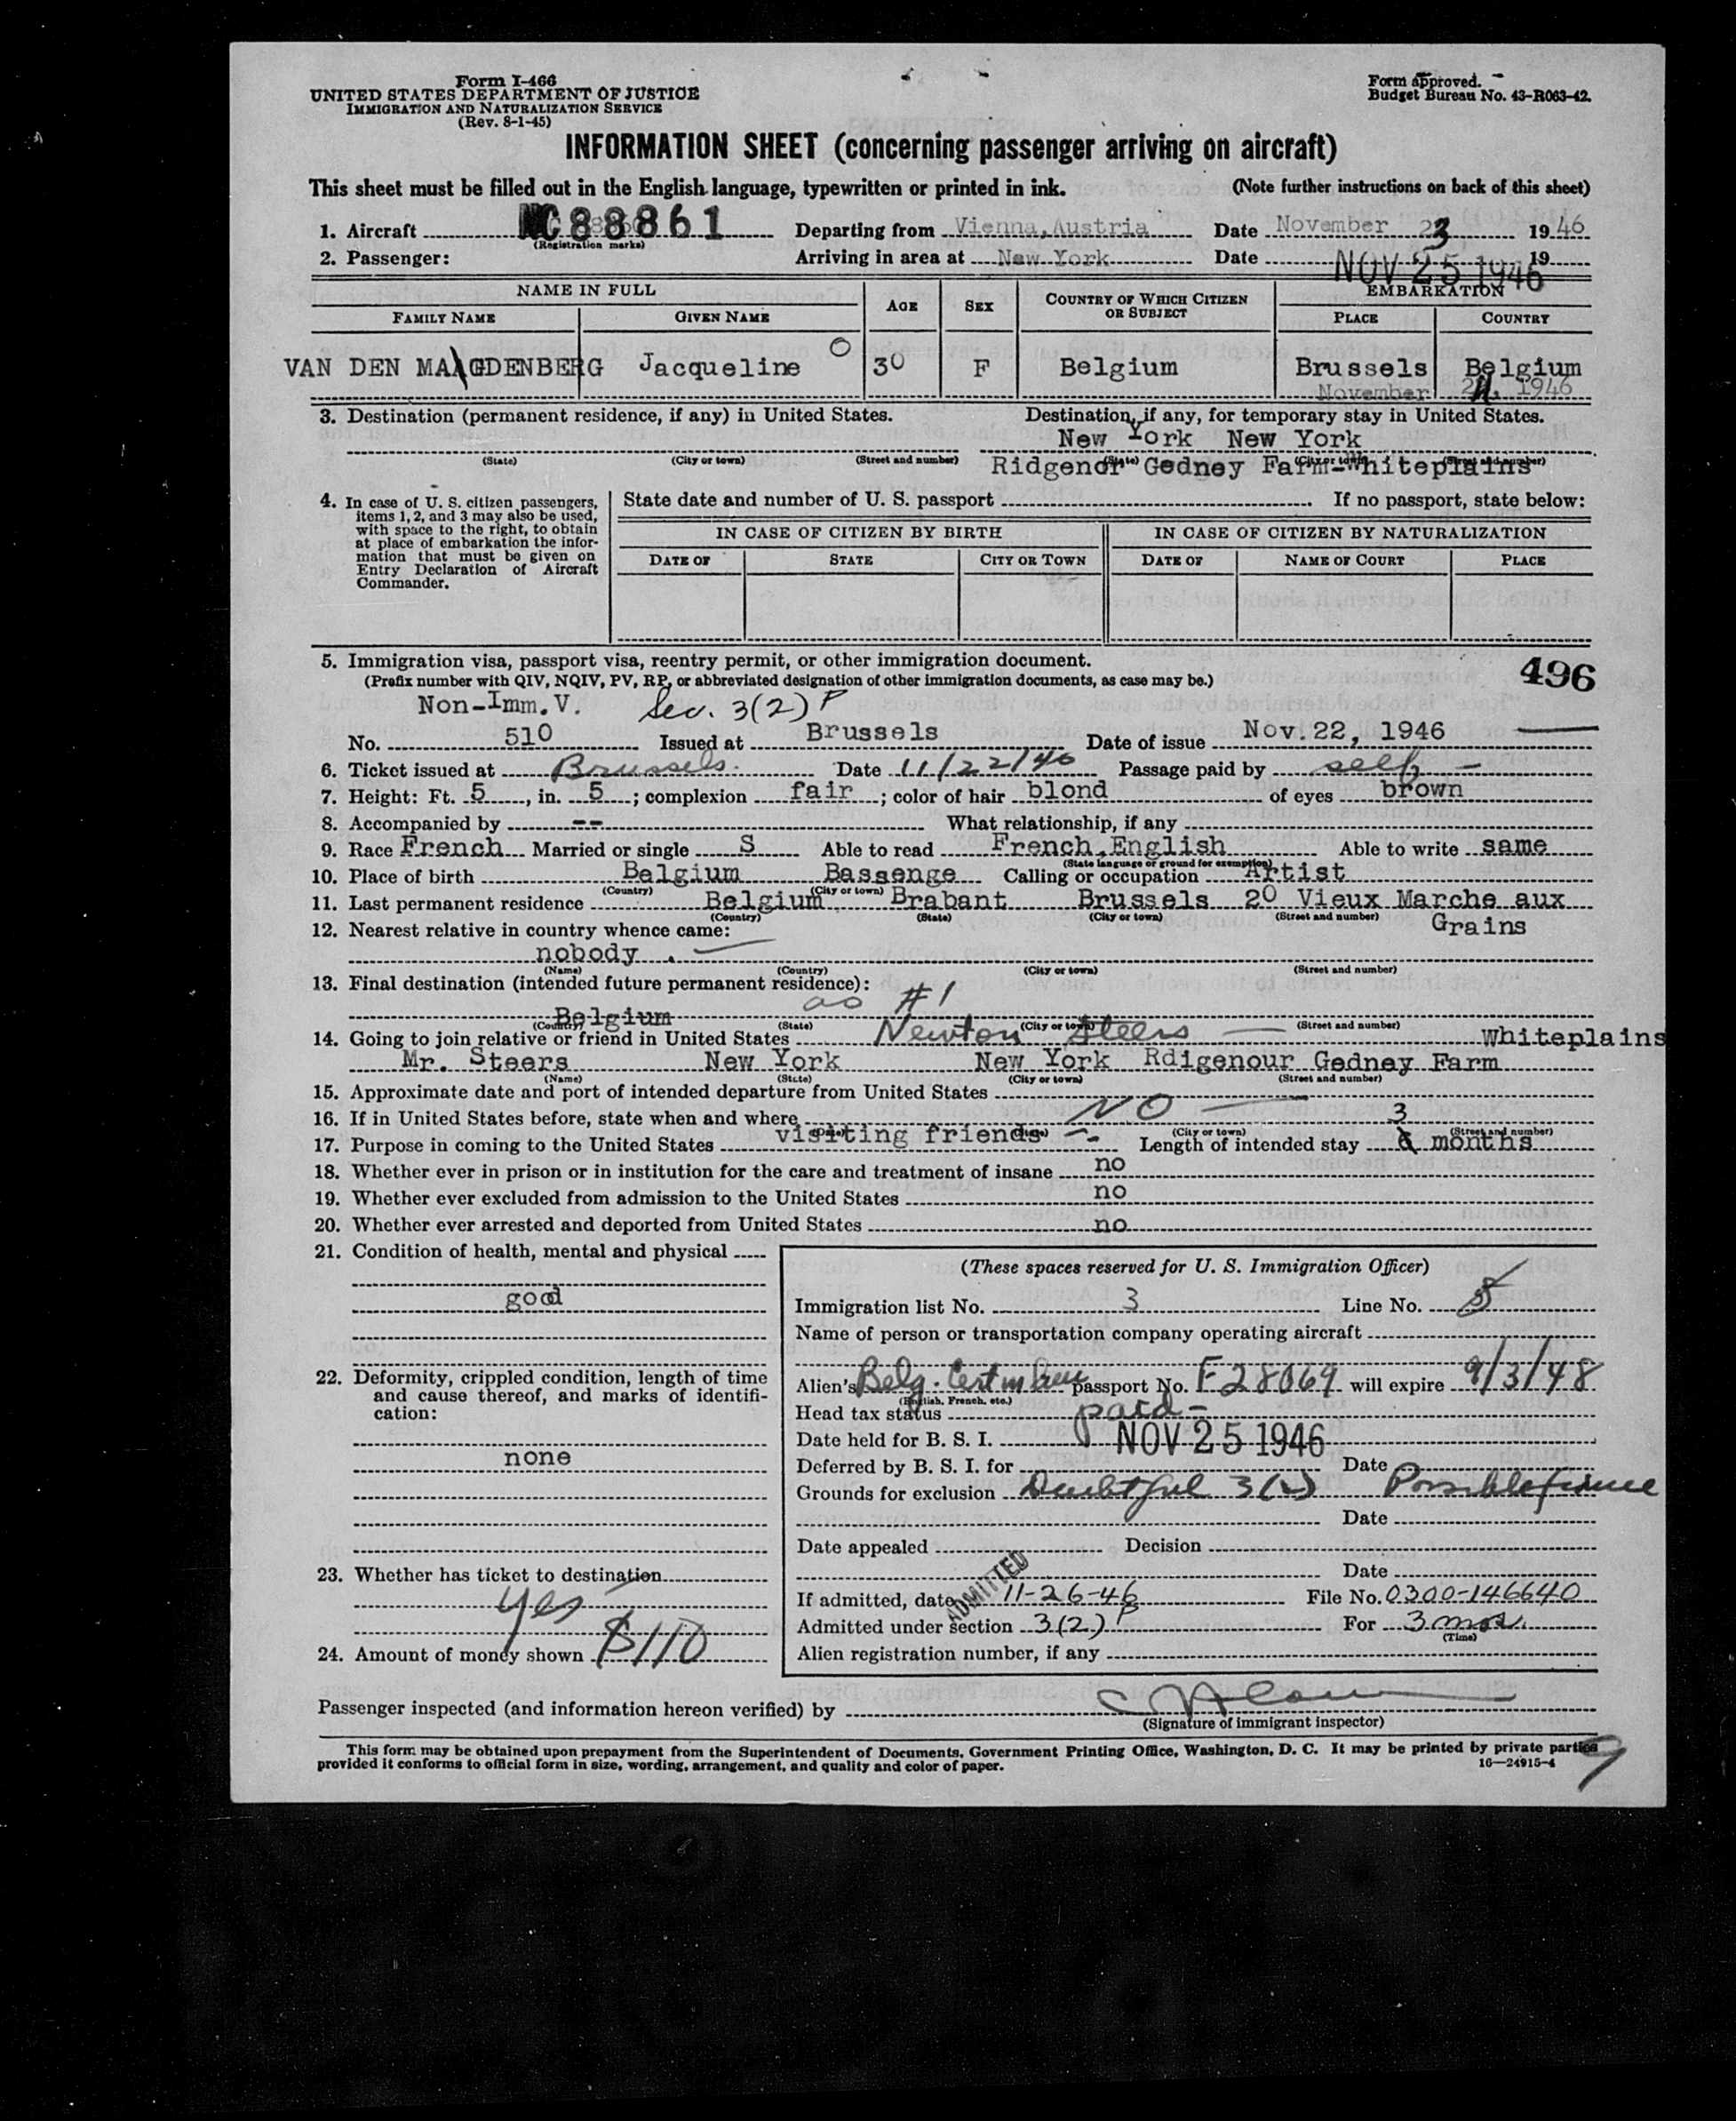 Form I-466
UNITED STATES DEPARTMENT OF JUSTICE
IMMIGRATION AND NATURALIZATION SERVICE
(Rev. 8-1-45)
Form approved.
Budget Bureau No. 43-R063-42.
INFORMATION SHEET (concerning passenger arriving on aircraft)
This sheet must be filled out in the English language, typewritten or printed in ink. (Note further instructions on back of this sheet)
1. Aircraft NC88861 Departing from Vienna, Austria Date November 23 1946
(Registration marks)
2. Passenger: Arriving in area at New York Date NOV 25 1946 19
NAME IN FULL AGE SEX COUNTRY OF WHICH CITIZEN OR SUBJECT EMBARKATION
FAMILY NAME GIVEN NAME PLACE COUNTRY
VAN DEN MAAGDENBERG Jacqueline 30 F Belgium Brussels Belgium
November 1946
3. Destination (permanent residence, if any) in United States. Destination, if any, for temporary stay in United States.
New York New York
(State) (City or town) (Street and number) (State) (City or town) (Street and number)
Ridgenor Gedney Farm-Whiteplains
4. In case of U. S. citizen passengers, items 1, 2, and 3 may also be used, with space to the right, to obtain at place of embarkation the information that must be given on Entry Declaration of Aircraft Commander.
State date and number of U. S. passport If no passport, state below:
IN CASE OF CITIZEN BY BIRTH IN CASE OF CITIZEN BY NATURALIZATION
DATE OF STATE CITY OR TOWN DATE OF NAME OF COURT PLACE
5. Immigration visa, passport visa, reentry permit, or other immigration document. 496
(Prefix number with QIV, NQIV, PV, RP, or abbreviated designation of other immigration documents, as case may be.)
Non-Imm. V. Sec. 3(2) P
No. 510 Issued at Brussels Date of issue Nov. 22, 1946
6. Ticket issued at Brussels. Date 11/22/46 Passage paid by self
7. Height: Ft. 5, in. 5; complexion fair; color of hair blond of eyes brown
8. Accompanied by -- What relationship, if any
9. Race French Married or single S Able to read French, English Able to write same
(State language or ground for exemption)
10. Place of birth Belgium Bassenge Calling or occupation Artist
(Country) (City or town)
11. Last permanent residence Belgium Brabant Brussels 20 Vieux Marche aux
(Country) (State) (City or town) (Street and number) Grains
12. Nearest relative in country whence came:
nobody .
(Name) (Country) (City or town) (Street and number)
13. Final destination (intended future permanent residence):
Belgium as #1
(Country) (State) (City or town) (Street and number)
14. Going to join relative or friend in United States Newton Steers Whiteplains
Mr. Steers New York New York Rdigenour Gedney Farm
(Name) (State) (City or town) (Street and number)
15. Approximate date and port of intended departure from United States
16. If in United States before, state when and where NO
(City or town) (Street and number)
17. Purpose in coming to the United States visiting friends Length of intended stay 3 months
18. Whether ever in prison or in institution for the care and treatment of insane no
19. Whether ever excluded from admission to the United States no
20. Whether ever arrested and deported from United States no
21. Condition of health, mental and physical
good
22. Deformity, crippled condition, length of time and cause thereof, and marks of identification:
none
23. Whether has ticket to destination
yes
24. Amount of money shown $110
(These spaces reserved for U. S. Immigration Officer)
Immigration list No. 3 Line No. 8
Name of person or transportation company operating aircraft
Alien's Belg. Cert in lieu passport No. F28069 will expire 9/3/48
(English, French, etc.)
Head tax status paid -
Date held for B. S. I. NOV 25 1946
Deferred by B. S. I. for Date
Grounds for exclusion Doubtful 3(2) Possible fiance
Date
Date appealed Decision
Date
If admitted, date ADMITTED 11-26-46 File No. 0300-146640
Admitted under section 3(2) P For 3 mos.
(Time)
Alien registration number, if any
Passenger inspected (and information hereon verified) by
(Signature of immigrant inspector)
This form may be obtained upon prepayment from the Superintendent of Documents, Government Printing Office, Washington, D. C. It may be printed by private parties
provided it conforms to official form in size, wording, arrangement, and quality and color of paper. 16—24915-4
9